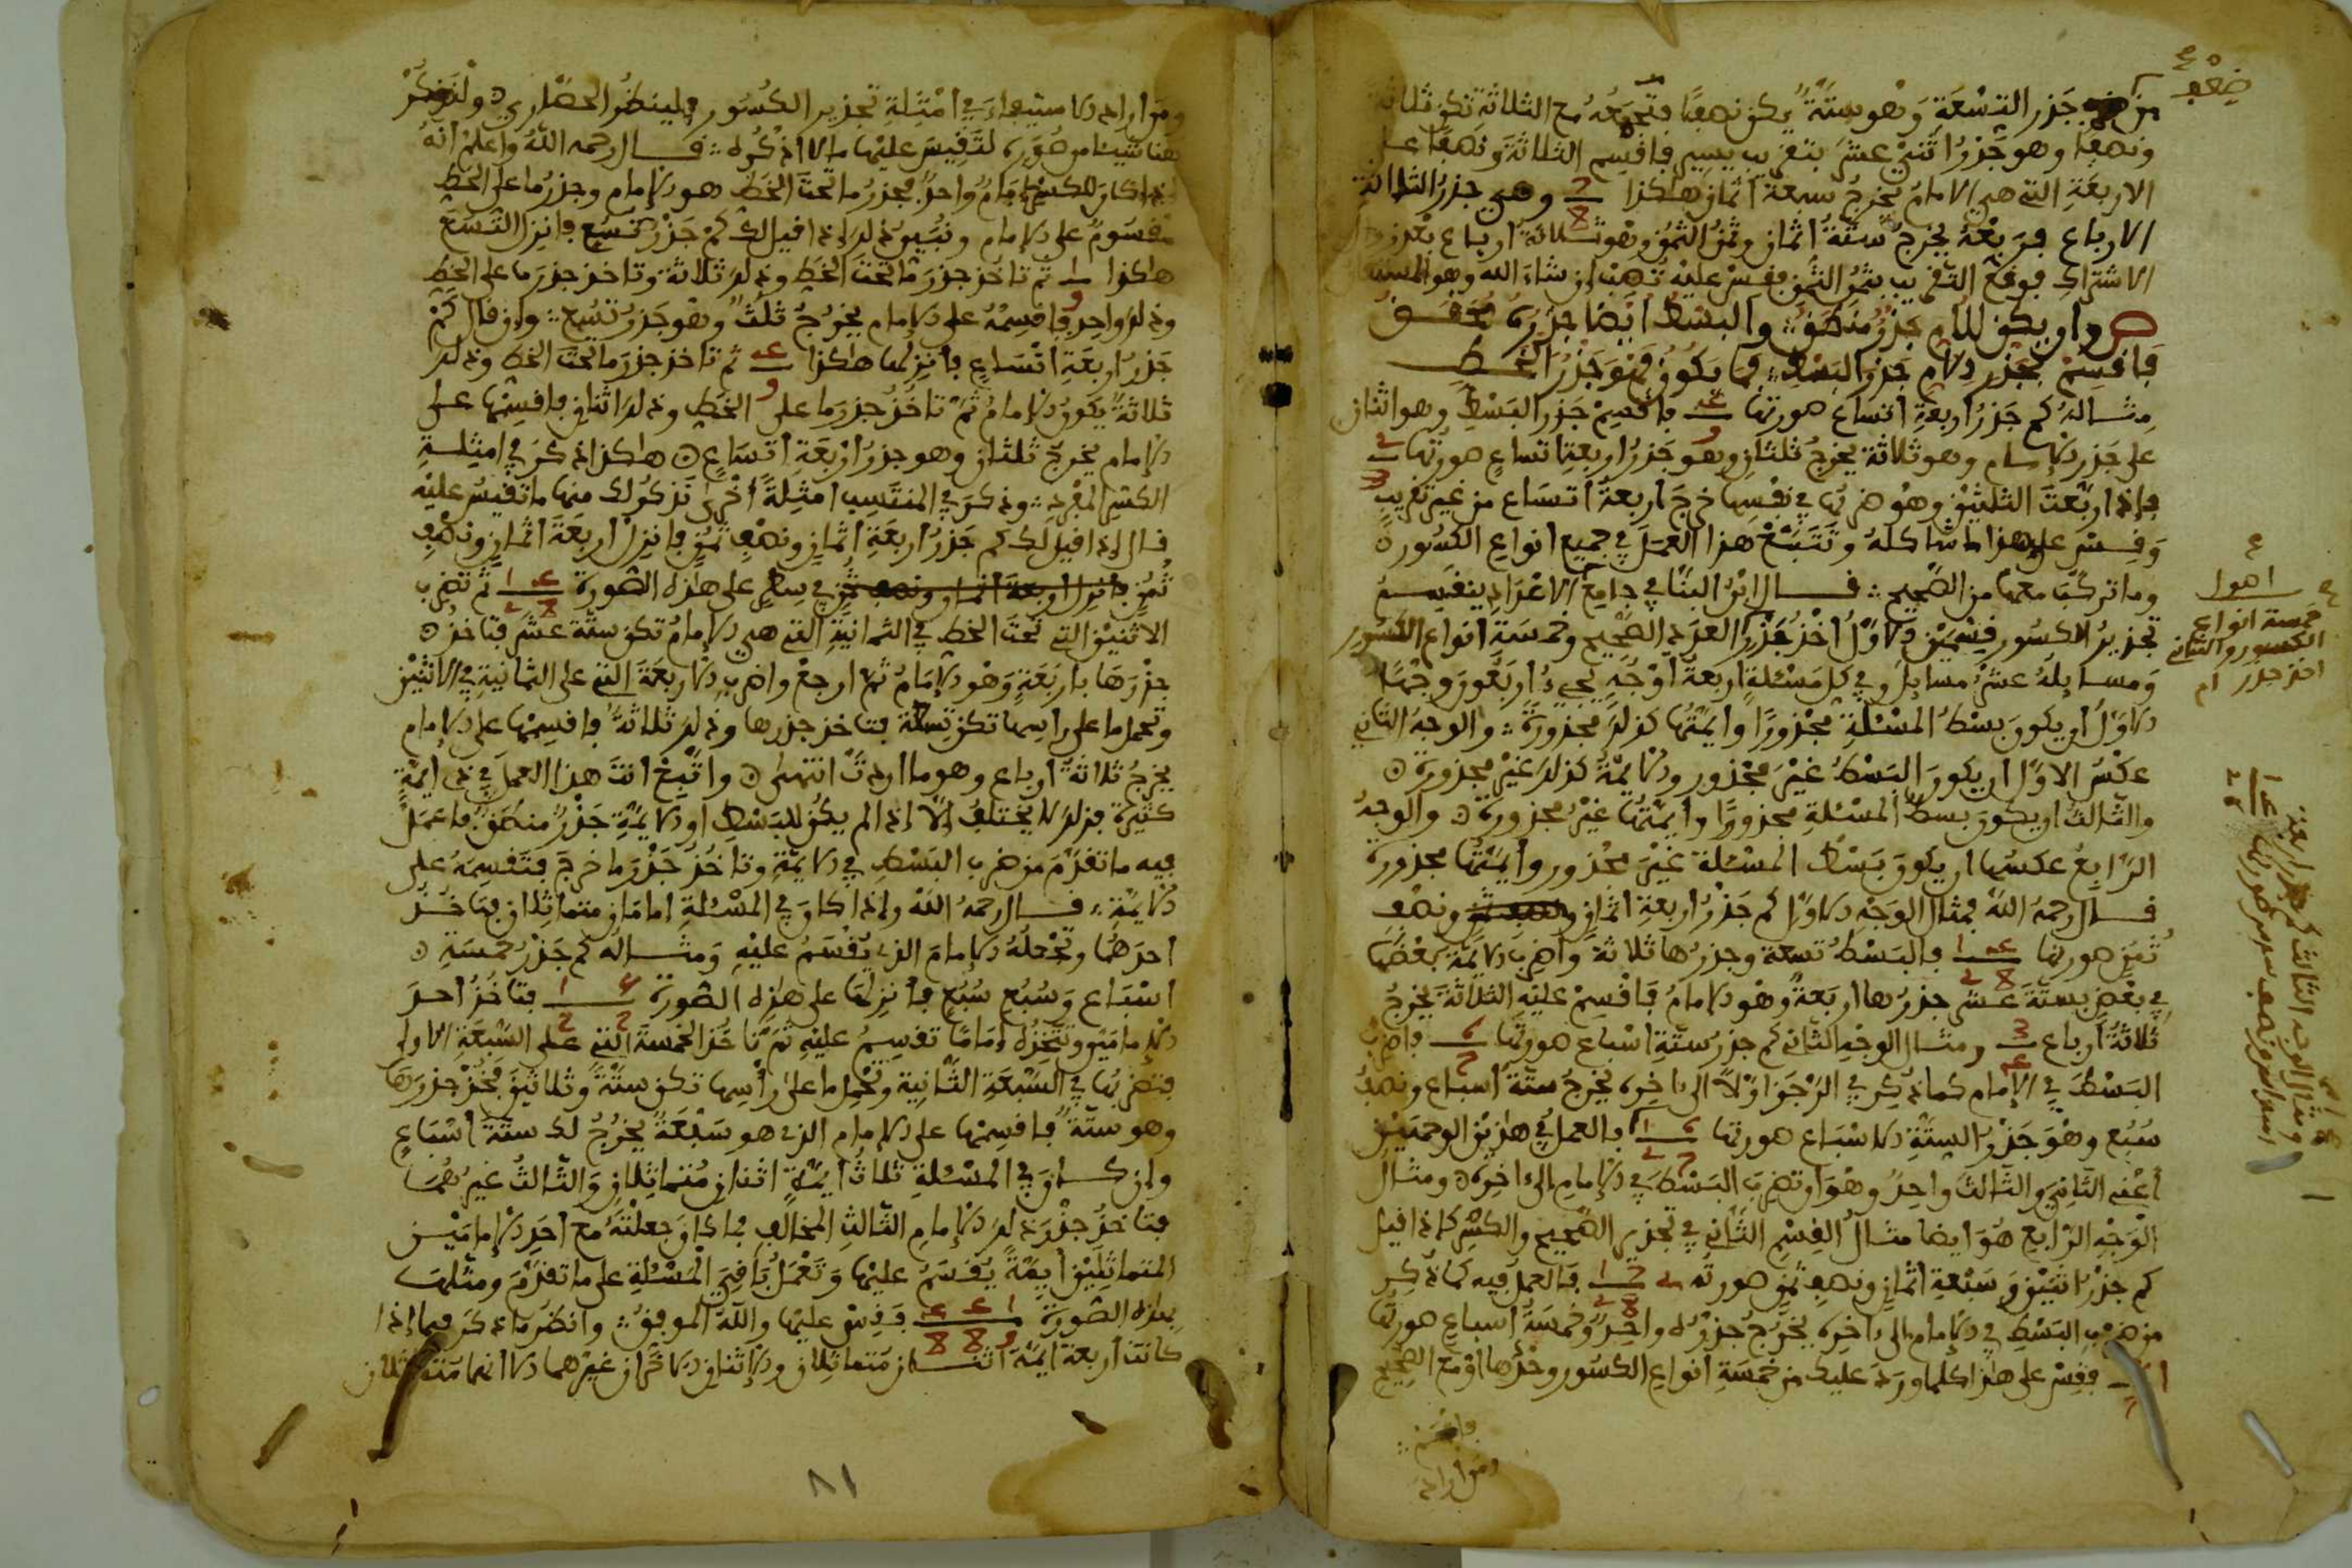 من ضعف جذر التسعة وهو ستة يكن نصفا فتجمعه مع الثلاثة تكن ثلاثة
ونصفا وهو جذر اثني عشر بتقريب يسير فاقسم الثلاثة ونصفا على
الاربعة التي هي الامام يخرج سبعة اثمان هكذا وهي جذر الثلاثة
الارباع فربعه يخرج ستة اثمان وثمن الثمن وهو ثلاثة ارباع بعد
الاشتراك فوقع التقريب بثمن الثمن فقس عليه تصب ان شاء الله
ص وان يكن للام جذر منطق والبسط ايضا جذره
فاقسم بجذر الام جذر البسط فما يكون فهو جذر
مثاله كم جذر اربعة اتساع صورتها فاقسم جذر البسط وهو اثنان
على جذر الامام وهو ثلاثة يخرج ثلثان وهو جذر اربعة اتساع صورتها
فاذا ربعت الثلثين وهو ضربها في نفسها خرج اربعة اتساع من غير تقريب
وقس على هذا ما شاكله وتتبع هذا العمل في جميع انواع الكسور
وما تركب معها من الصحيح قال ابن البنا في جامع الاعداد ينقسم
تجذير الكسور قسمين الاول اخذ جذر العدد الصحيح وخمسة انواع الكسور
ومسايله عشر مسايل وفي كل مسئلة اربعة اوجه تجيء اربعون وجها
الاول ان يكون بسط المسئلة مجذورا وايمتها كذلك مجذورة والوجه الثاني
عكس الاول ان يكون البسط غير مجذور والايمة كذلك غير مجذورة
والثالث ان يكون بسط المسئلة مجذورا وايمتها غير مجذورة والوجه
الرابع عكسها ان يكون بسط المسئلة غير مجذور وايمتها مجذورة
قال رحمه الله فمثال الوجه الاول كم جذر اربعة اثمان ونصف
ثمن صورتها فالبسط تسعة وجذرها ثلاثة واضرب الايمة بعضها
في بعض بستة عشر جذرها اربعة وهو الامام فاقسم عليه الثلاثة يخرج
ثلاثة ارباع ومثال الوجه الثاني كم جذر ستة اسباع صورتها فاضرب
البسط في الامام كما ذكر في الرجز اولا الى اخره يخرج ستة اسباع ونصف
سبع وهو جذر الستة الاسباع صورتها فالعمل في هذين الوجهين
اعني الثاني والثالث واحد وهو ان تضرب البسط في الامام الى اخره ومثال
الوجه الرابع هو ايضا مثال القسم الثاني في تجذير الصحيح والكسر كاذا قيل
كم جذر اثنين وسبعة اثمان ونصف ثمن صورته فالعمل فيه كما ذكر
من ضرب البسط في الامام الى اخره يخرج جذره واحد وخمسة اسباع صورتها
فقس على هذا كلما ورد عليك من خمسة انواع الكسور وحدها او مع الصحيح
ومن اراد الاستيفاء في امثلة تجذير الكسور فلينظر الحصار ولنذكر
هنا شيئا من صوره لتقيس عليها ما لا اذكره قال رحمه الله واعلم انه
اذا كان للكسر امام واحد فجذر ما تحت الخط هو الامام وجذر ما على الخط
مقسوم على الامام وتبين ذلك اذا قيل لك كم جذر تسع فانزل التسع
هكذا ثم تاخذ جذر ما تحت الخط وذلك ثلاثة وتاخذ جذر ما على الخط
وذلك واحد فاقسمه على الامام يخرج ثلث وهو جذر تسع وان قال كم
جذر اربعة اتساع فانزلها هكذا ثم تاخذ جذر ما تحت الخط وذلك
ثلاثة يكون الامام ثم تاخذ جذر ما على الخط وذلك اثنان فاقسمها على
الامام يخرج ثلثان وهو جذر اربعة اتساع هكذا ذكر في امثلة
الكسر المفرد وذكر في المنتسب امثلة اخرى نذكر لك منها ما تقيس عليه
قال اذا قيل لك كم جذر اربعة اثمان ونصف ثمن فانزل اربعة اثمان ونصف
ثمن في سطر على هذه الصورة ثم تضرب
الاثنين التي تحت الخط في الثمانية التي هي الامام تكن ستة عشر فتاخذ
جذرها باربعة وهو الامام ثم ارجع واضرب الاربعة التي على الثمانية في الاثنين
وتحمل ما على راسها تكن تسعة فتاخذ جذرها وذلك ثلاثة فاقسمها على الامام
يخرج ثلاثة ارباع وهو ما اردت انتهى واتبع انت هذا العمل في ذي ايمة
كثيرة فذلك لا يختلف الا اذا لم يكن للبسط او الايمة جذر منطق فاعمل
فيه ما تقدم من ضرب البسط في الايمة وتاخذ جذر ما خرج فتقسمه على
الايمة قال رحمه الله واذا كان في المسئلة امامان متماثلان فتاخذ
احدهما وتجعله الامام الذي يقسم عليه ومثاله كم جذر خمسة
اسباع وسبع سبع فانزلها على هذه الصورة فتاخذ احد
الامامين وتتخذه اماما تقسم عليه ثم تاخذ الخمسة التي على السبعة الاولى
فتضربها في السبعة الثانية وتحمل ما على راسها تكن ستة وثلاثين فخذ جذرها
وهو ستة فاقسمها على الامام الذي هو سبعة يخرج لك ستة اسباع
وان كان في المسئلة ثلاث ايمة اثنان متماثلان والثالث غيرهما
فتاخذ جذر ذلك الامام الثالث المخالف فما كان جعلته مع احد الامامين
المتماثلين ايمة يقسم عليها وتعمل باقي المسئلة على ما تقدم ومثلها
بهذه الصورة فقس عليها والله الموفق وانظر ما ذكر فيما اذا
كانت اربعة ايمة اثنان متماثلان والاثنان الاخران غيرهما الا انهما متماثلان
٨١